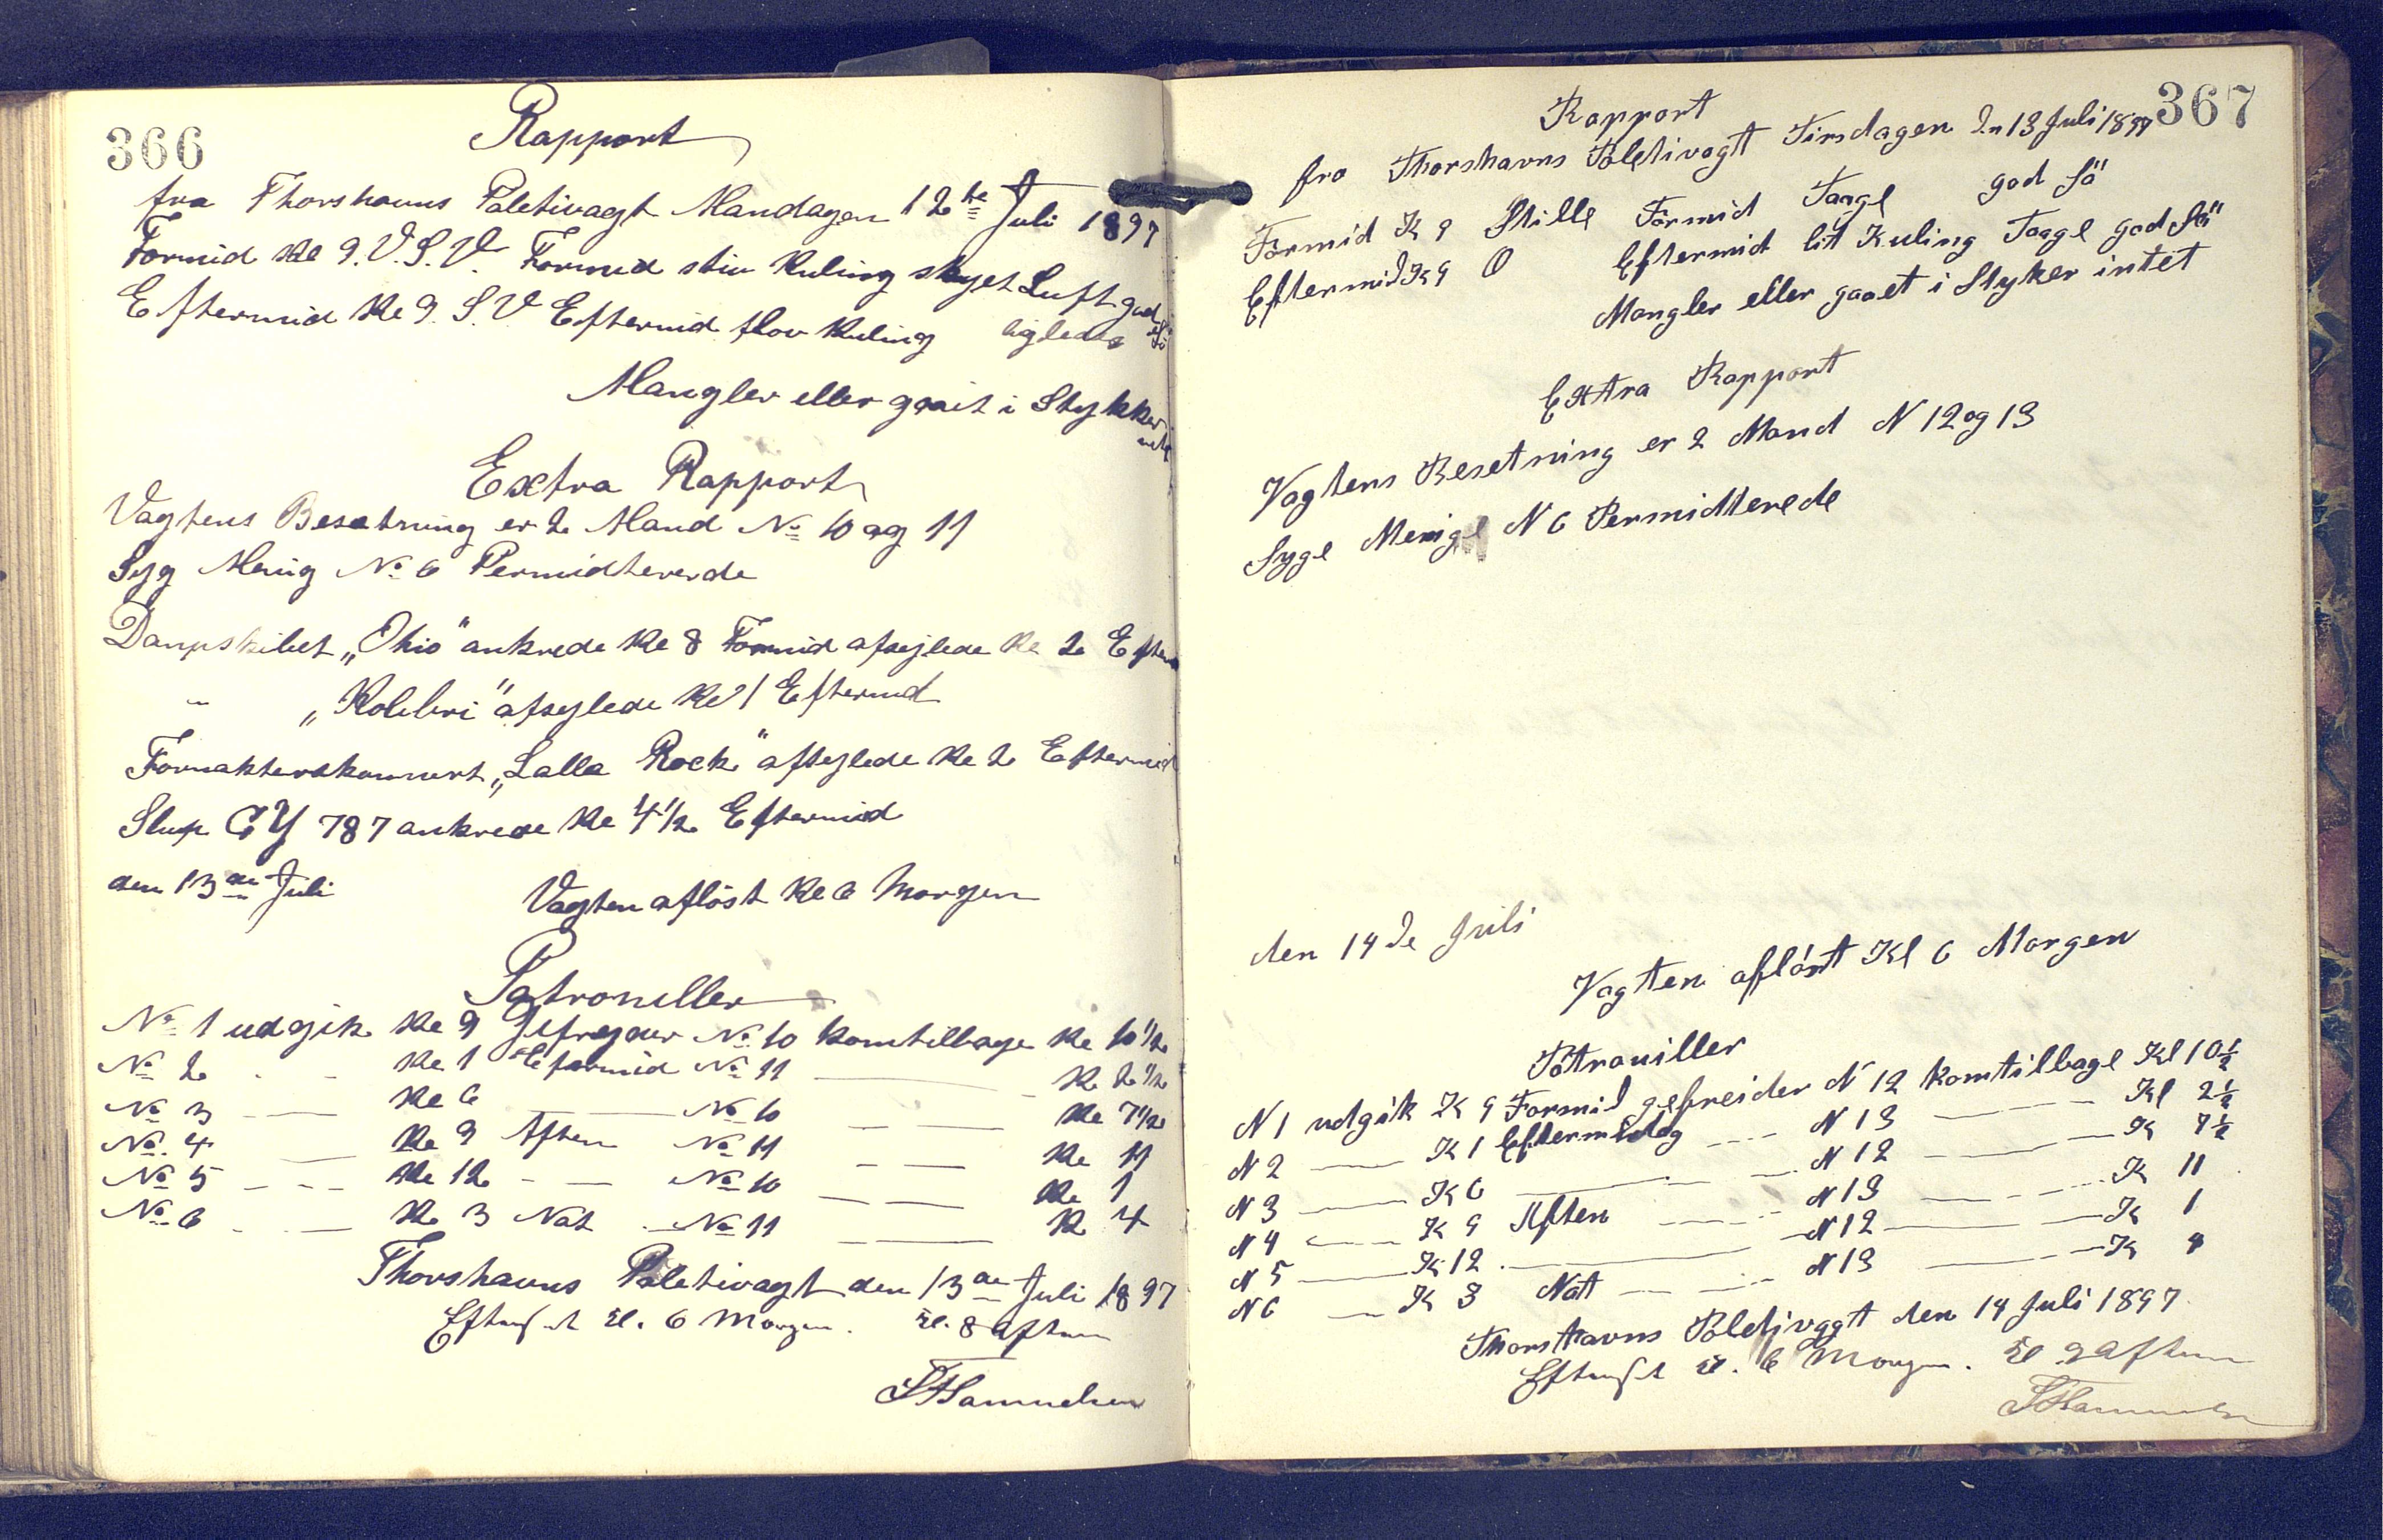 366
Rapport
fra Thorshavns Poletivagt Mandagen 12te Juli 1897
Formid Kl 9. V.S.V. Formid stiv Kuling skyet Luft god Sö
Eftermid Kl 9. S.V Eftermid flov Kuling ligledes
Mangler eller gaait i Stykker intet
Extra Rapport
Vagtens Besætning er 2 Mand No 10 og 11
Syg Menig No 6 Permidterede
Dampskibet „Ohio" ankrede Kl 8 Formid afsejlede Kl 2 Efterm
" „Kolibri" afsejlede Kl 1 Eftermid
Fornakterskonnert „Lalla Rock" afsejlede Kl 2 Eftermid
Slup GY 787 ankrede Kl 4 1/2 Eftermid
den 13de Juli
Vagten aflöst Kl 6 Morgen
Patrouiller
No 1 udgik Kl 9 Gefrejder No 10 komtilbage Kl 10 1/2
No 2 - - Kl 1 Eftermid No 11 — - K 2 1/2
No 3 - — Kl 6 — No 10 — — Kl 7 1/2
No 4 — Kl 9 Aften No 11 — — Kl 11
No 5 - - - Kl 12 - — No 10 — — Kl 1
No 6 - — K 3 Nat - No 11 — — K 4
Thorshavns Poletivagt den 13de Juli 1897
Efterset Kl. 6 Morgen. Kl. 8 Aften
Samuelsen
367
Rapport
fra Thorshavns Poletivagt Tirsdagen dn 13 Juli 1897
Formid K 9 Stille Formid Taage god Sö
Eftermid K 9 O Eftermid lit Kuling Taage god Sö
Mangler eller gaaet i Styker intet
Extra Rapport
Vagtens Besetning er 2 Mand N 12 og 13
Syge Menige N 6 Permidterede
den 14de Juli
Vagten aflöst Kl 6 Morgen
Patrouiller
N 1 udgik K 9 Formid gefreider N 12 komtilbage Kl 10 1/2
N 2 — K 1 Eftermidag - - - N 13 — Kl 2 1/2
N 3 — K 6 — N 12 — K 7 1/2
N 4 — K 9 Aften — N 13 — K 11
N 5 — K 12 — N 12 — K 1
N 6 — K 3 Nat — N 13 — K 4
Thorshavns Poletivagt den 14 Juli 1897.
Efterset Kl. 6 Morgen. Kl 9 Aften
Samuelsen